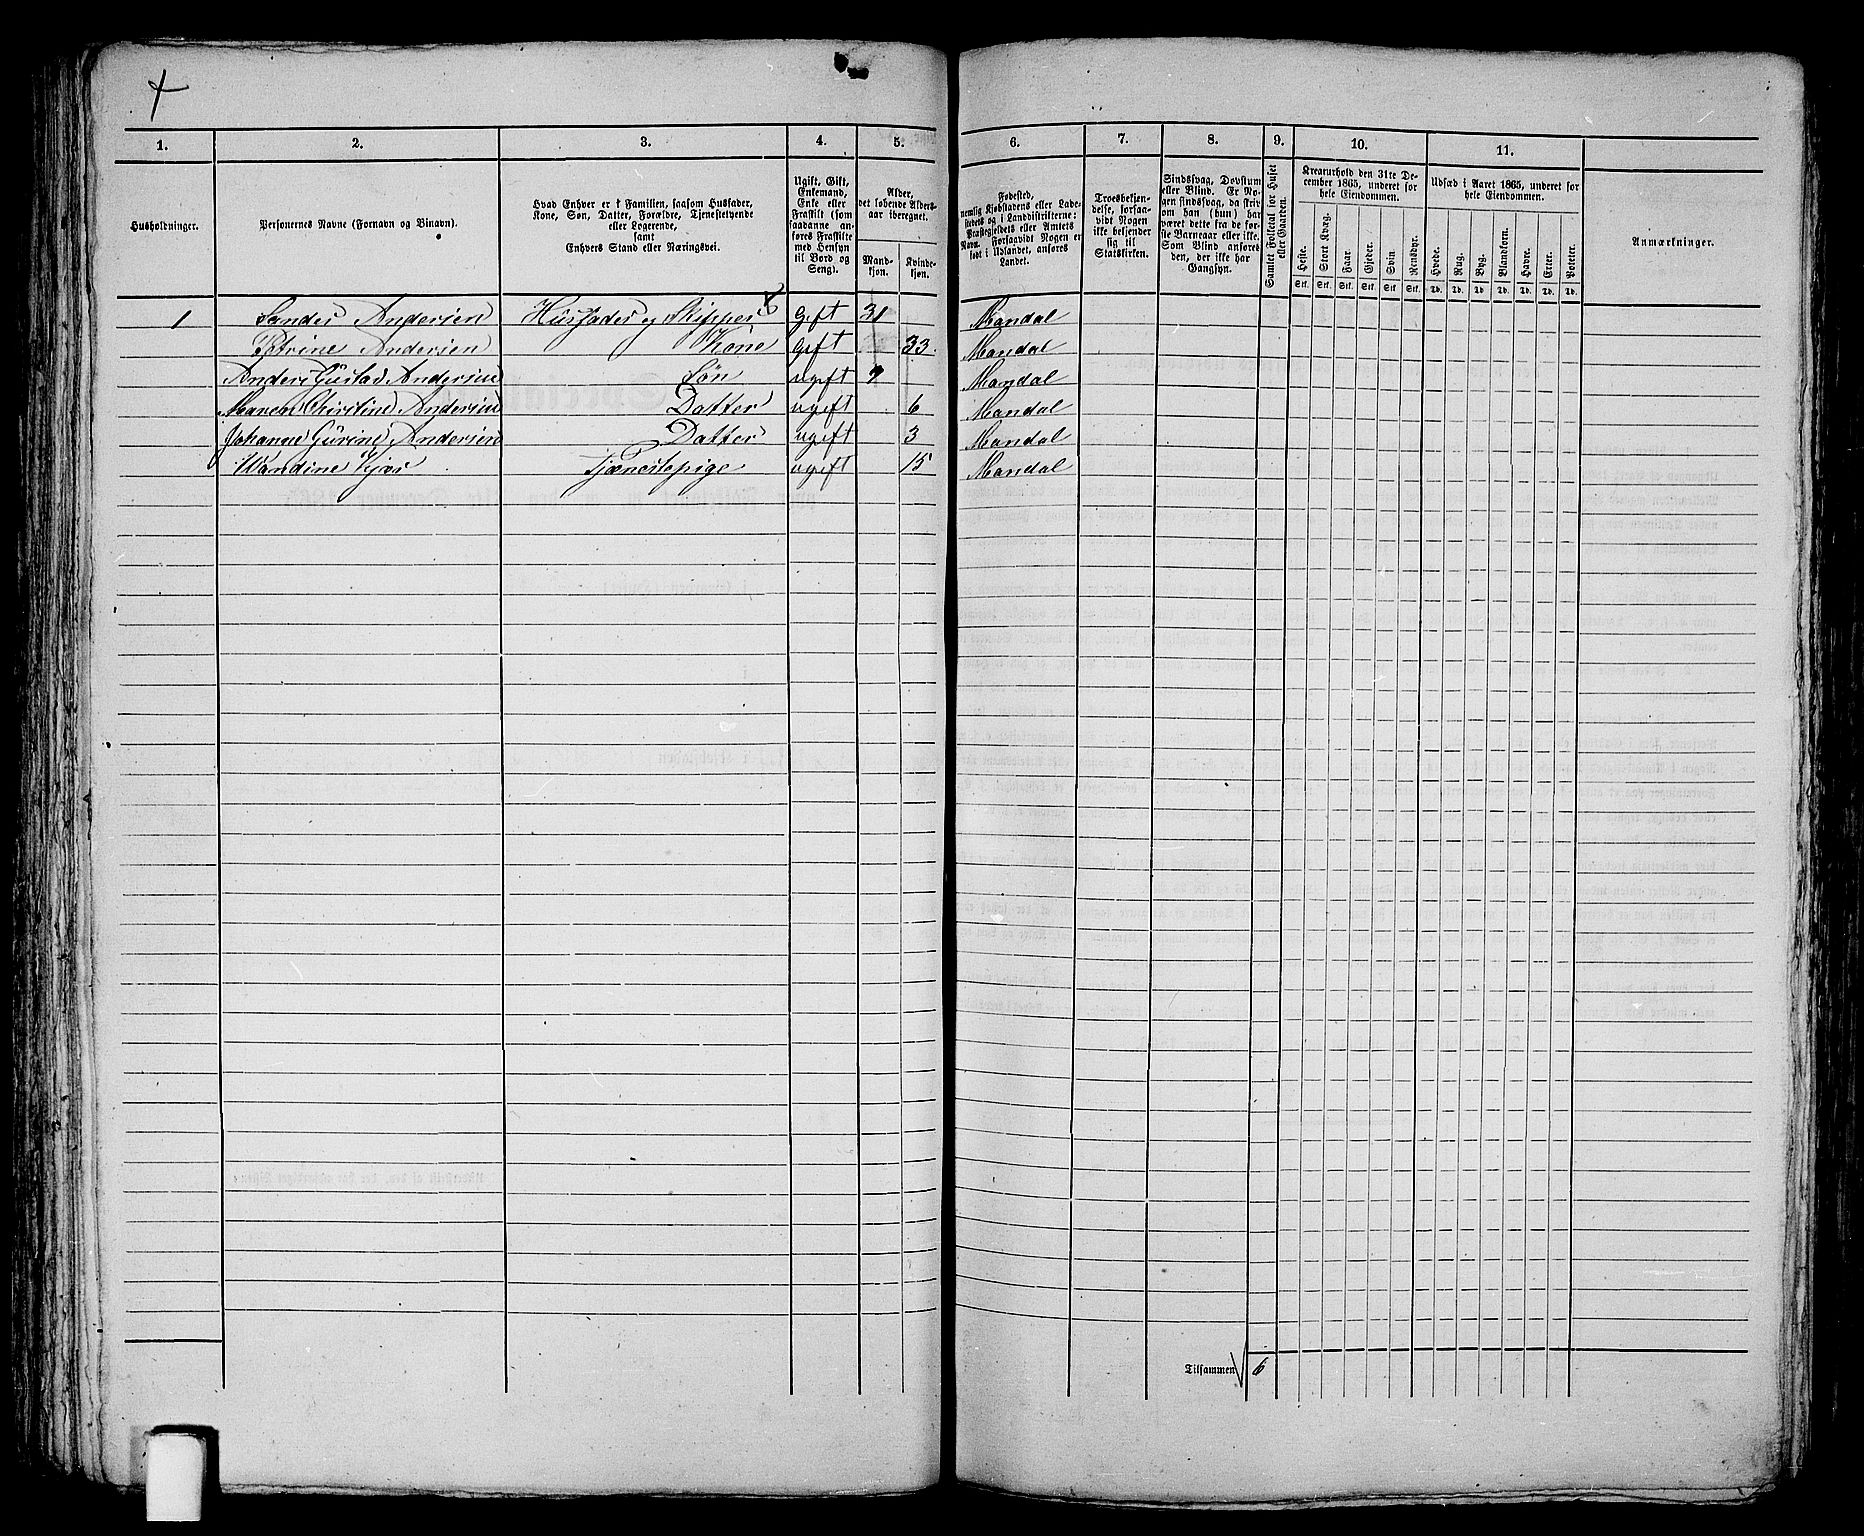 1. 2. 3. 4. 5. 6. 7. 8. 9. 10. 11.
Husholdninger.
Personernes Navne (Fornavn og Binavn).
Hvad Enhver er i Familien, saasom Husfader,
Kone, Søn, Datter, Forældre, Tjenestetyende
eller Logerende,
samt
Enhvers Stand eller Næringsvei.
Ugift, Gift,
Enkemand,
Enke eller
Fraskilt (som
saadanne an-
føres Fraskilte
med Hensyn
til Bord og
Seng).
Alder,
det løbende Alders-
aar iberegnet.
Mand-
kjøn.
Kvinde-
kjøn.
Fødested,
nemlig Kjøbstadens eller Lade-
stedets og i Landdistrikterne:
Præstegjeldets eller Amtets
Navn. Forsaavidt Nogen er
født i Udlandet, anføres
Landet.
Troesbekjen-
delse, forsaa-
vidt Nogen
ikke bekjender
sig til
Statskirken.
Sindssvag, Døvstum
eller Blind. Er No-
gen sindssvag, da skriv
om han (hun) har
været dette fra de før-
ste Barneaar eller ikke.
Som Blind anføres
den, der ikke har
Gangsyn.
Samlet Folketal for Huset
eller Gaarden.
Kreaturhold den 31te De-
cember 1865, underet for
hele Eiendommen.
Heste. Stort Kvæg. Faar. Gjeder. Svin. Rensdyr.
Stk. Stk. Stk. Stk. Stk. Stk.
Udsæd i Aaret 1865, underet for
hele Eiendommen.
Hvede. Rug. Byg. Blandkorn. Havre. Erter. Poteter.
Td. Td. Td. Td. Td. Td. Td.
Anmærkninger.
1 Sander Andersen Huusfader og Skipper Gift 31 Mandal
Petrine Andersen Kone Gift 33. Mandal
Anders Gustav Andersen Søn ugift 9 Mandal
Maren Kirstine Andersen Datter ugift 6 Mandal
Johanne Gurine Andersen Datter ugift 3 Mandal
Wandine Kjær Tjenestepige ugift 15 Mandal
Tilsammen 6